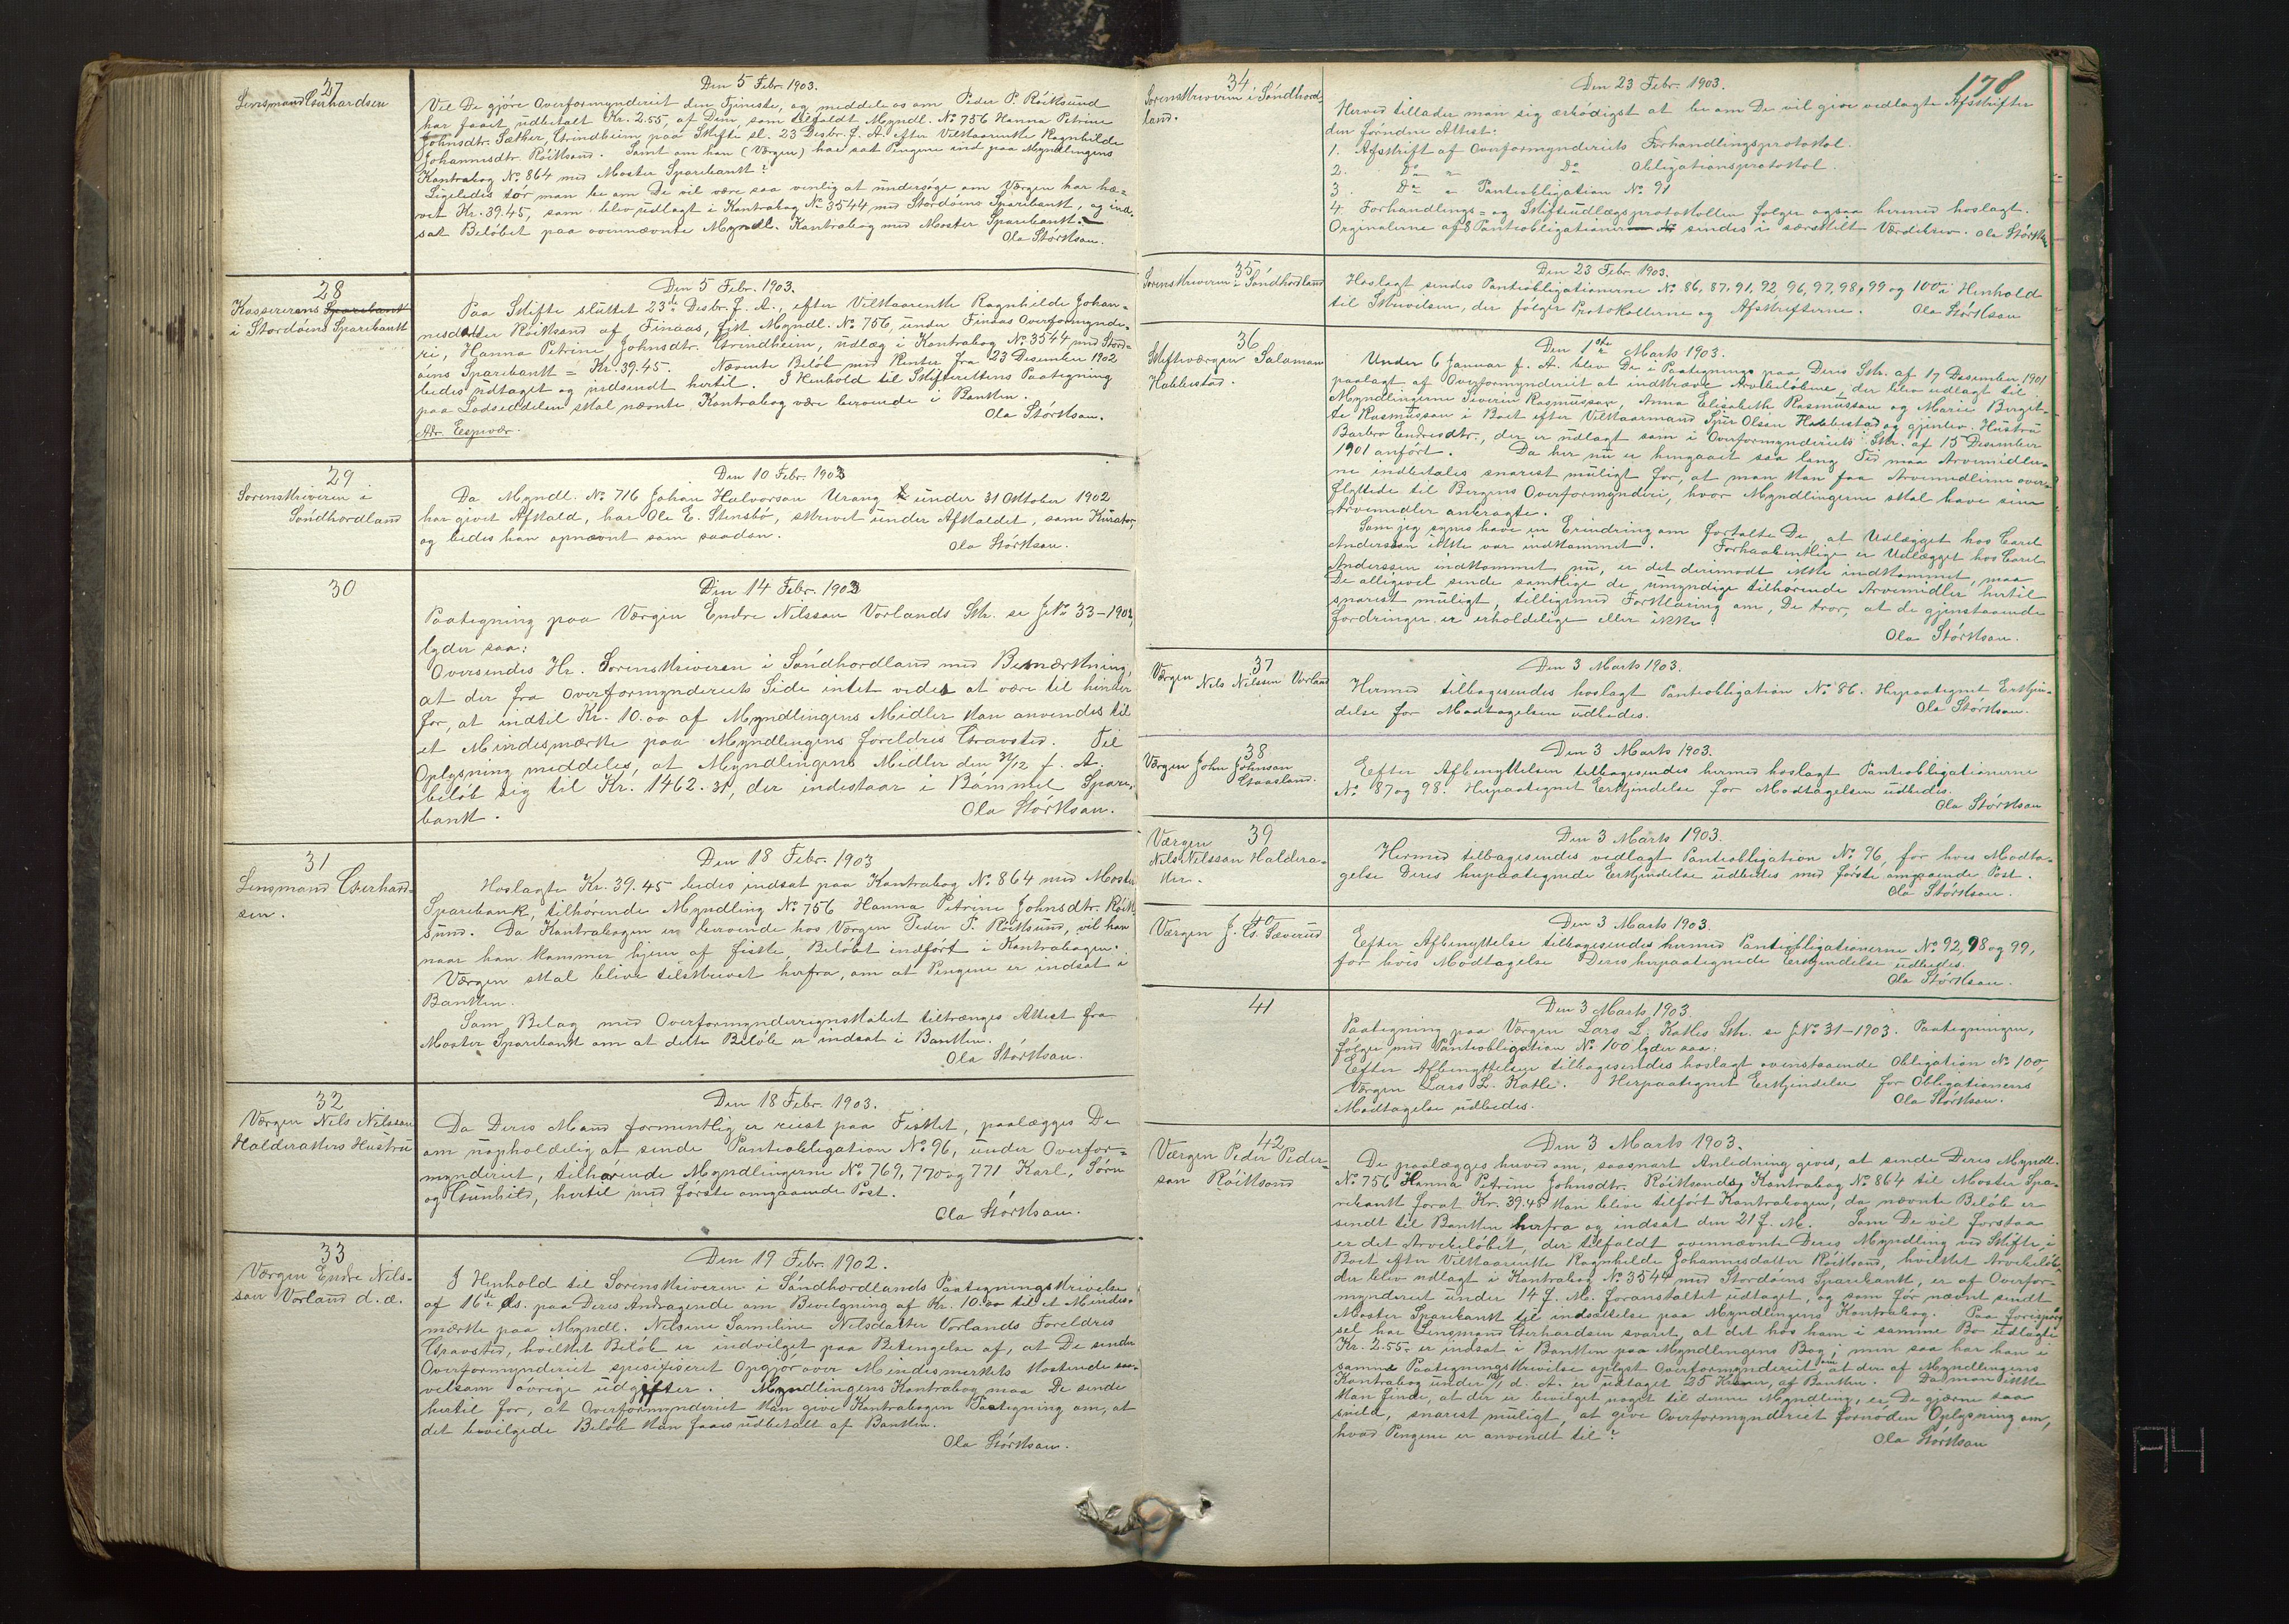 27
Lensmand Gerhardsen
Den 5 Febr. 1903.
Vil De gjöre Overformynderiet den Tjeneste, og meddele os om Peder P. Röiksund
har faaet udbetalt Kr. 2.55, af Dem, som tilfaldt Myndl. No 756 Hanna Petrine
Johnsdtr. Sæther, Grindheim paa Skifte sl. 23 Desbr. f. A. efter Vilkaarenke Ragnhilde
Johannisdtr. Röiksund. Samt om han (Værgen) har sat Pengene ind paa Myndlingens
Kontrabog No 864 med Moster Sparebank?
Ligeledes tör man be om De vil være saa venlig at undersöge om Værgen har hæ-
vet Kr. 39.45, som blev udlagt i Kontrabog No 3544 med Stordöens Sparebank, og ind-
sat Belöbet paa ovennævnte Myndl. Kontrabog med Moster Sparebank.
Ola Störkson.
28
Kassererens Sparebank
i Stordöens Sparebank
Den 5 Febr. 1903.
Paa Skifte sluttet 23de Desbr. f. A., efter Vilkaarenke Ragnhilde Johan-
nesdatter Röiksund af Finaas, fik Myndl. No 756, under Finaas Overformynde-
ri, Hanna Petrine Johnsdtr. Grindheim, udlæg i Kontrabog No 3544 med Stord-
öens Sparebank = Kr. 39.45. Nævnte Belöb med Renter fra 23 Desember 1902
bedes udtaget og indsendt hertil. I Henhold til Skifterettens Paategning
paa Lodseddelen skal nævnte Kontrabog være beroende i Banken.
Ola Störkson.
Adr. Espevær.
29
Sorenskriveren i
Söndhordland
Den 10 Febr. 1903
Da Myndl. No 716 Johan Halvorson Urang under 31 Oktober 1902
har givet Afkald, har Ole E. Stensbö, skrevet under Afkaldet, som Kurator,
og bedes han opnævnt som saadan.
Ola Störkson.
30
Den 14 Febr. 1903
Paategning paa Værgen Endre Nilsson Vorlands Skr. se J.No 33-1902,
lyder saa:
Oversendes Hr. Sorenskriveren i Söndhordland med Bemærkning,
at der fra Overformynderiets Side intet vides at være til hinder
for, at indtil Kr. 10.00 af Myndlingens Midler kan anvendes til
et Mindesmærke paa Myndlingens foreldres Gravsted. Til
Oplysning meddeles, at Myndlingens Midler den 31/12 f. A.
belöb sig til Kr. 1462.31, der indestaar i Bömmel Spare-
bank.
Ola Störkson.
31
Lensmand Gerhard-
sen.
Den 18 Febr. 1903
Hoslagte Kr. 39.45 bedes indsat paa Kontrabog No 864 med Moster
Sparebank, tilhörende Myndling No 756 Hanna Petrine Johnsdtr. Röik-
sund. Da Kontrabogen er beroende hos Værgen Peder P. Röiksund, vil han
naar han kommer hjem af fiske, Belöbet indfört i Kontrabogen.
Værgen skal blive tilskrevet herfra, om at Pengene er indsat i
Banken.
Som Belag med Overformynderregnskabet tiltrænges Attest fra
Moster Sparebank om at dette Belöb er indsat i Banken.
Ola Störkson.
32
Værgen Nils Nilsson
Halderakers Hustru
Den 18 Febr. 1903.
Da Deres Mand formentlig er reist paa Fisket, paalægges De
om uopholdelig at sende Pantobligation No 96, under Overfor-
mynderiet, tilhörende Myndlingerne No 769, 770 og 771 Karl, Sörn
og Gunhild, hertil med förste omgaaende Post.
Ola Störkson.
33
Værgen Endre Nils-
son Vorland d. æ.
Den 19 Febr. 1902.
I Henhold til Sorenskriveren i Söndhordlands Paategningsskrivelse
af 16de ds. paa Deres Andragende om Bevilgning af Kr. 10.00 til et Mindes-
mærke paa Myndl. Nilsine Samiline Nilsdatter Vorlands Foreldres
Gravsted, hvilket Belöb er indvilget paa Betingelse af, at De sender
Overformynderiet spesifiseret Opgjör over Mindesmerkets Kostende saa-
velsom övrige udgifter. Myndlingens Kontrabog maa De sende
hertil for, at Overformynderiet kan give Kontrabogen Paategning om, at
det bevilgede Belöb kan faaes udbetalt af Banken.
Ola Störkson.
178
34
Sorenskriveren i Söndhord-
land.
Den 23 Febr. 1903.
Herved tillader man sig ærbödigst at be om De vil give vedlagte Afskrifter
den fornödne Attest:
1. Afskrift af Overformynderiets Forhandlingsprotokol.
2. Do " Do Obligationsprotokol.
3. Do " Pantobligation No 91
4. Forhandlings- og Skifteudlægsprotokollen fölger ogsaa hermed hoslagt.
Orginalerne af 8 Pantobligationer sendes i særskilt Værdibrev. Ola Störkson
35
Sorenskriveren i Söndhordland
Den 23 Febr. 1903.
Hoslagt sendes Pantobligationerne No 86, 87, 91, 92, 96, 97, 98, 99 og 100 i Henhold
til Skrivelsen, der fölger Protokollerne og Afskrifterne. Ola Störkson
36
Skifteværgen Salamon
Habbestad.
Den 1ste Marts 1903.
Under 6 Januar f. A. blev De i Paategnings paa Deres Skr. af 17 Desember 1901
paalagt af Overformynderiet at indkræve Arvebelöbene, der blev udlagt til
Myndlingerne Siverin Rasmusson, Anna Elisabeth Rasmusson og Marie Birgit-
te Rasmusson i Boet efter Vilkaarmand Sjur Olsen Habbestad og gjenlev. Hustru
Barbro Endresdtr., der er udlagt som i Overformynderiets Skr. af 15 Desember
1901 anfört. Da her nu er hengaaet saa lang Tid maa Arvemidler-
ne indbetales snarest muligt for, at man kan faa Arvemidlerne over-
flyttede til Bergens Overformynderi, hvor Myndlingerne skal have sine
Arvemidler anbragte.
Som jeg synes have en Erindring om fortalte De, at Udlægget hos Carl
Andersson ikke var indkommet. Forhaabentlige er Udlægget hos Carl
Anderssen indkommet nu, er det derimodt ikke indkommet, maa
De alligevel sende samtlige de umyndige tilhörende Arvemidler hertil
snarest muligt, tilligemed Forklaring om, De tror, at de gjenstaaende
fordringer er erholdelige eller ikke?
Ola Störkson.
37
Værgen Nils Nilssen Vorland
Den 3 Marts 1903.
Hermed tilbagesendes hoslagt Pantobligation No 86. Herpaategnet Erkjen-
delse for Modtagelsen udbedes. Ola Störkson.
38
Værgen John Johnson
Gaasland.
Den 3 Marts 1903.
Efter Afbenyttelsen tilbagesendes hermed hoslagt Pantobligationerne
No 87 og 98. Herpaategnet Erkjendelse for Modtagelsen udbedes.
Ola Störkson
39
Værgen
Nils Nilsson Haldera-
ker.
Den 3 Marts 1903.
Hermed tilbagesendes vedlagt Pantobligation No 96, for hvis Modta-
gelse Deres herpaategnede Erkjendelse udbedes med förste omgaaende Post.
Ola Störkson.
40
Værgen J. G. Sæverud
Den 3 Marts 1903.
Efter Afbenyttelse tilbagesendes hermed Pantobligationerne No 92, 98 og 99,
for hvis Modtagelse Deres herpaategnede Erkjendelse udbedes.
Ola Störkson.
41
Den 3 Marts 1903.
Paategning paa Værgen Lars L. Katles Skr. se J.No 31-1903. Paategningen,
fölger med Pantobligation No 100 lyder saa:
Efter Afbenyttelsen tilbagesendes hoslagt ovenstaaende Obligation No 100,
Værgen Lars L. Katle. Herpaategnet Erkjendelse for Obligationens
Modtagelse udbedes. Ola Störkson.
42
Værgen Peder Peder-
son Röiksund
Den 3 Marts 1903.
De paalægges herved om, saasnart Anledning gives, at sende Deres Myndl.
No 756 Hanna Petrine Johnsdtr. Röiksunds Kontrabog No 864 til Moster Spa-
rebank forat Kr. 39.45 kan blive tilfört Kontrabogen, da nævnte Belöb er
sendt til Banken herfra og indsat den 21 f. M. Som De vil forstaa
er det Arvebelöbet, der tilfaldt ovennævnte Deres Myndling ved Skifte i
Boet efter Vilkaarenke Ragnhilde Johannesdatter Röiksund, hvilket Arvebelöb,
der blev udlagt i Kontrabog No 3544 med Stordöens Sparebank, er af Overfor-
mynderiet under 14 f. M. foranstaltet udtaget, og som för nævnt sendt
Moster Sparebank til indsættelse paa Myndlingens Kontrabog. Paa forespörg-
sel har Lensmand Gerhardsen svaret, at det hos ham i samme Bo udlagte
Kr. 2.55 er indsat i Banken paa Myndlingens Bog; men saa har han i
samme Paategningsskrivelse oplyst Overformynderiet om at der af Myndlingens
Kontrabog under d. A. er udtaget 35 Kroner, af Banken. Da man ikke
kan finde, at der er bevilget noget til denne Myndling, er De gjerne saa
sneld, snarest muligt, at give Overformynderiet fornöden Oplysning om,
hvad Pengene er anvendt til?
Ola Störkson